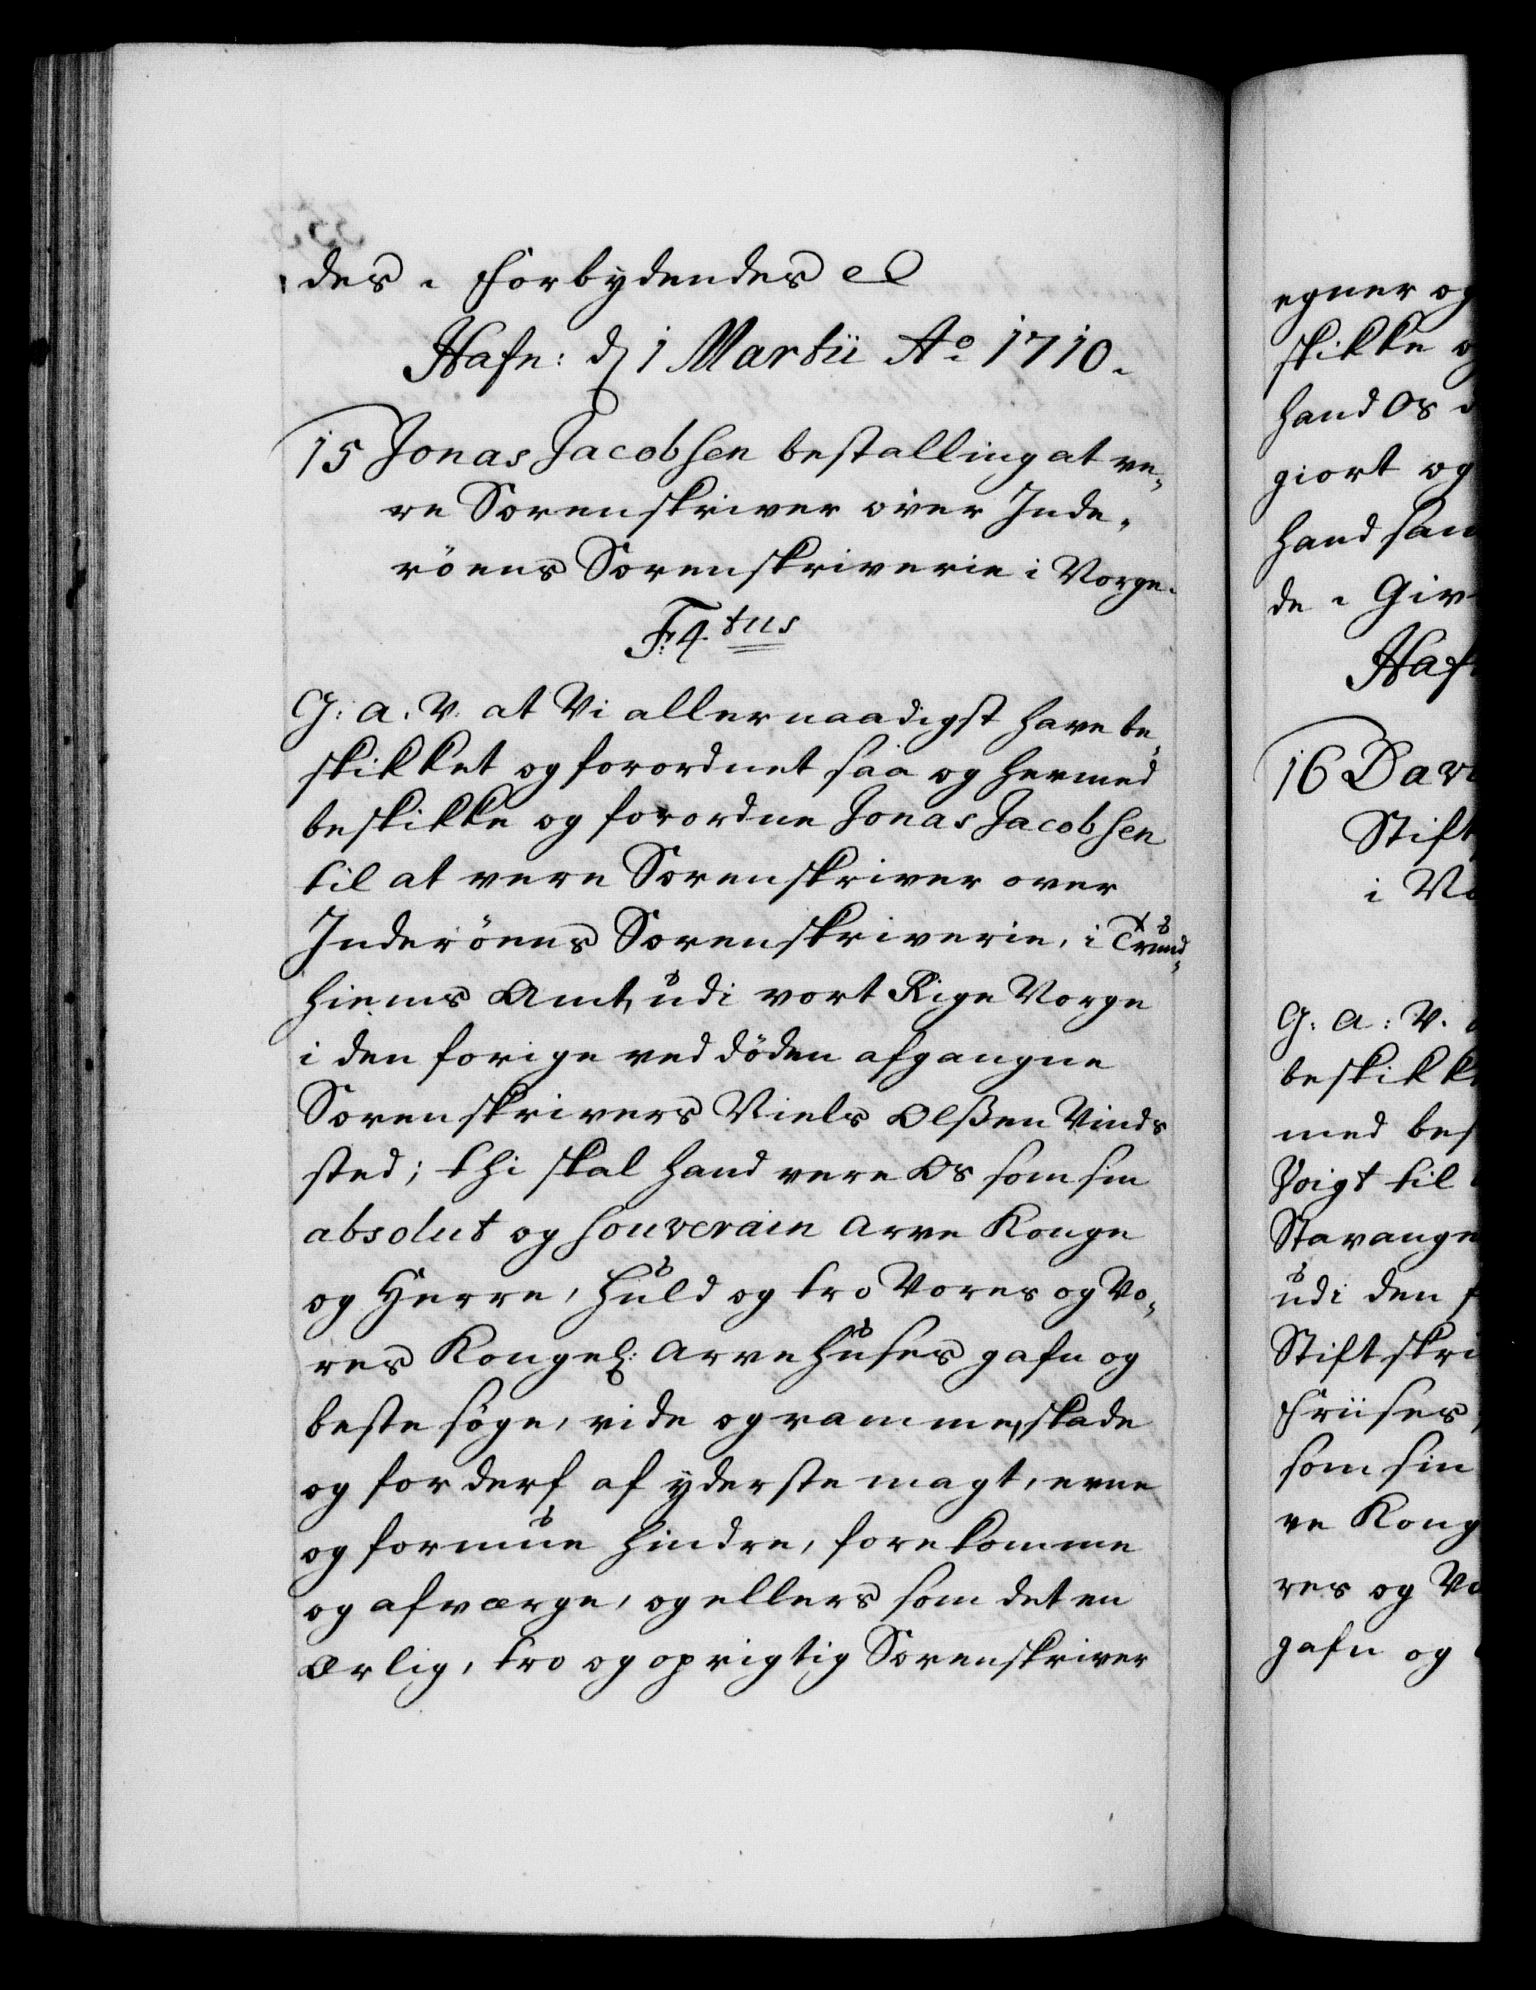 des. Forbydendes
Hafn: d 1 Martii Ao 1710.
15 Jonas Jacobsen bestalling at ve,
re Sorenskriver over Inde,
röens Sorenskriverie i Norge.
F: 4.tus
G: A: V: at Vi allernaadigst have be,
skikket og forordnet saa og hermed
beskikke og forordne Jonas Jacobsen
til at vere Sorenskriver over
Inderöens Sorenskriverie, i Trund,
hiems Amt, udi vort Rige Norge
i den forige ved döden afgangne
Sorenskrivers Niels Olßen Vinds
sted; thi skal hand vere Os som sin
absolut og souverain Arve Konge
og Herre, huld og tro Vores og Vo,
res Kongel: Arvehuses gafn og
beste söge, vide og ramme, skade
og forderf af yderste magt, evne
og formue hindre, forekomme
og afværge, og ellers som det en
ærlig, tro og oprigtig Sorenskriver
egner og
skikke
hand Os
giort og
hand
de. Giv
Haf
16
Stift
i
G: A: V.
beskikk
med bes
Voigt til
Stavange
udi den
Stiftskri
Friises
som sin
ve Kong
res og Vo
gafn og